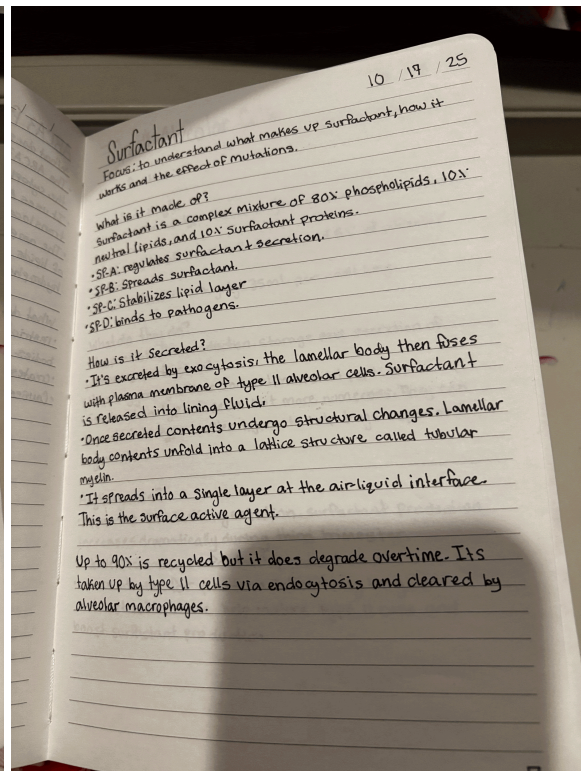 10 / 17 / 25
Surfactant
Focus: to understand what makes up surfactant, how it
works and the effect of mutations.
What is it made of?
Surfactant is a complex mixture of 80% phospholipids, 10%
neutral lipids, and 10% surfactant proteins.
• SP-A: regulates surfactant secretion.
• SP-B: Spreads surfactant.
• SP-C: Stabilizes lipid layer
• SP-D: binds to pathogens.
How is it secreted?
• It's excreted by exocytosis, the lamellar body then fuses
with plasma membrane of type II alveolar cells. Surfactant
is released into lining fluid.
• Once secreted contents undergo structural changes. Lamellar
body contents unfold into a lattice structure called tubular
myelin.
• It spreads into a single layer at the air-liquid interface.
This is the surface active agent.
Up to 90% is recycled but it does degrade overtime. Its
taken up by type II cells via endocytosis and cleared by
alveolar macrophages.